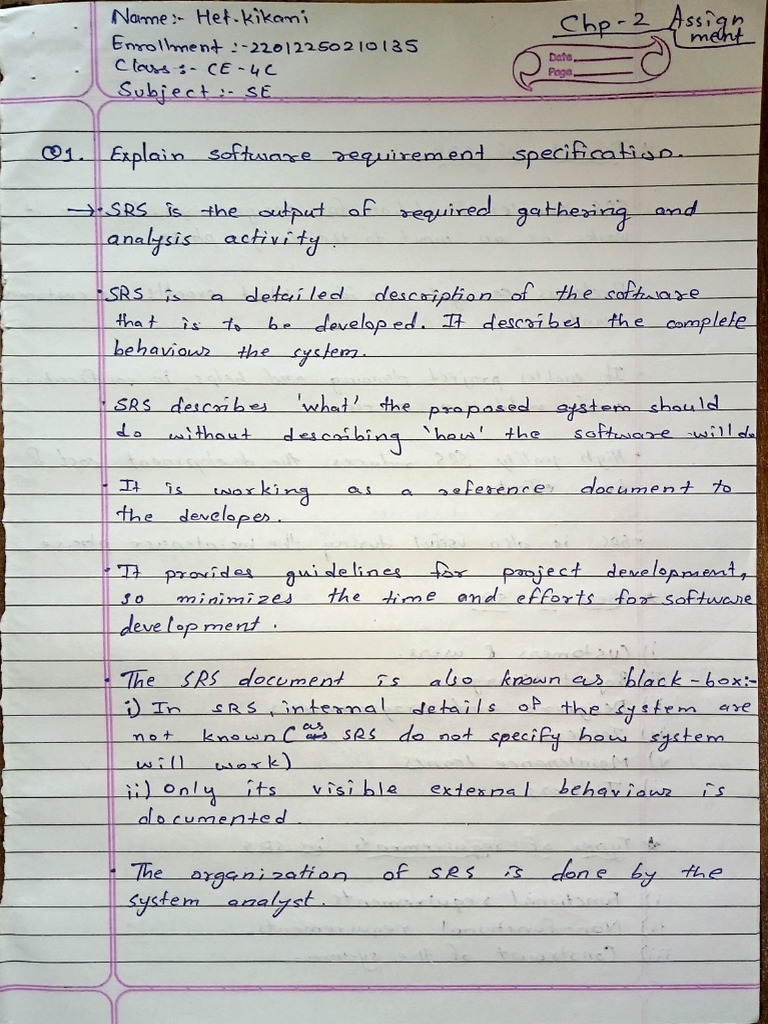 Name:- Het.kikani
Enrollment :-22012250210135
Class :- CE-4C
Subject :- SE
Chp-2 Assign
ment
Date
Page
Q1. Explain software requirement specification.
→ • SRS is the output of required gathering and
analysis activity.
• SRS is a detailed description of the software
that is to be developed. It describes the complete
behaviour the system.
• SRS describes 'what' the proposed system should
do without describing 'how' the software will do
• It is working as a reference document to
the developer.
• It provides guidelines for project development,
so minimizes the time and efforts for software
development.
• The SRS document is also known as black-box:-
i) In SRS, internal details of the system are
not known (as SRS do not specify how system
will work)
ii) Only its visible external behaviour is
documented.
• The organization of SRS is done by the
system analyst.